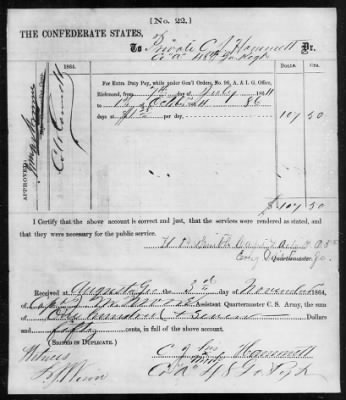 [No. 22.]
THE CONFEDERATE STATES,
To Private C. J. Hammett Dr.
Co. A 48th Ga Regt
1864.
Dolls. Cts.
For Extra Duty Pay, while under Gen'l Orders, No. 66, A. & I. G. Office,
Richmond, from 7th day of July 1864
1st October 1864 86
days at $1.25 per day, 107 50
APPROVED:
$107.50
I Certify that the above account is correct and just, that the services were rendered as stated, and
that they were necessary for the public service.
Quartermaster,
Received at Augusta Geo the 3rd of November
of Capt Assistant Quartermaster C. S. Army, the sum
of One hundred & Seven Dollars
and fifty cents, in full of the above account.
(SIGNED IN DUPLICATE.)
Witness
C J his Hammett
mark
Co A 48 Ga Regt